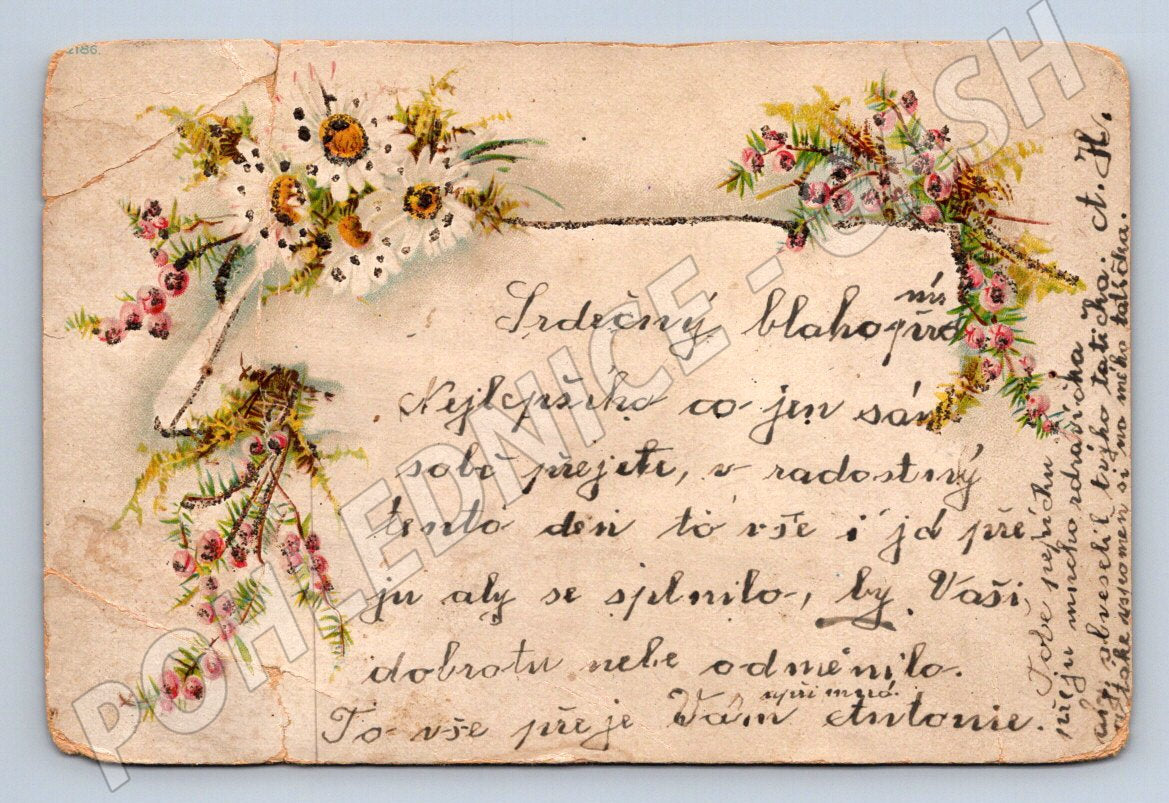 2186.
Srdečný blahopřá
ní
Nejlepšího co jen sám
sobě přejete, v radostný
tento den to vše i já pře
ju aby se splnilo, by Vaši
dobrotu nebe odměnilo.
To vše přeje Vám upřimná Antonie.
Tobě pepíčku
přeju mnoho zdravíčka
by obveselil tvýho tatíčka. A. H.
a tak vzpomeň si na mého
POHLEDNICE - CASH